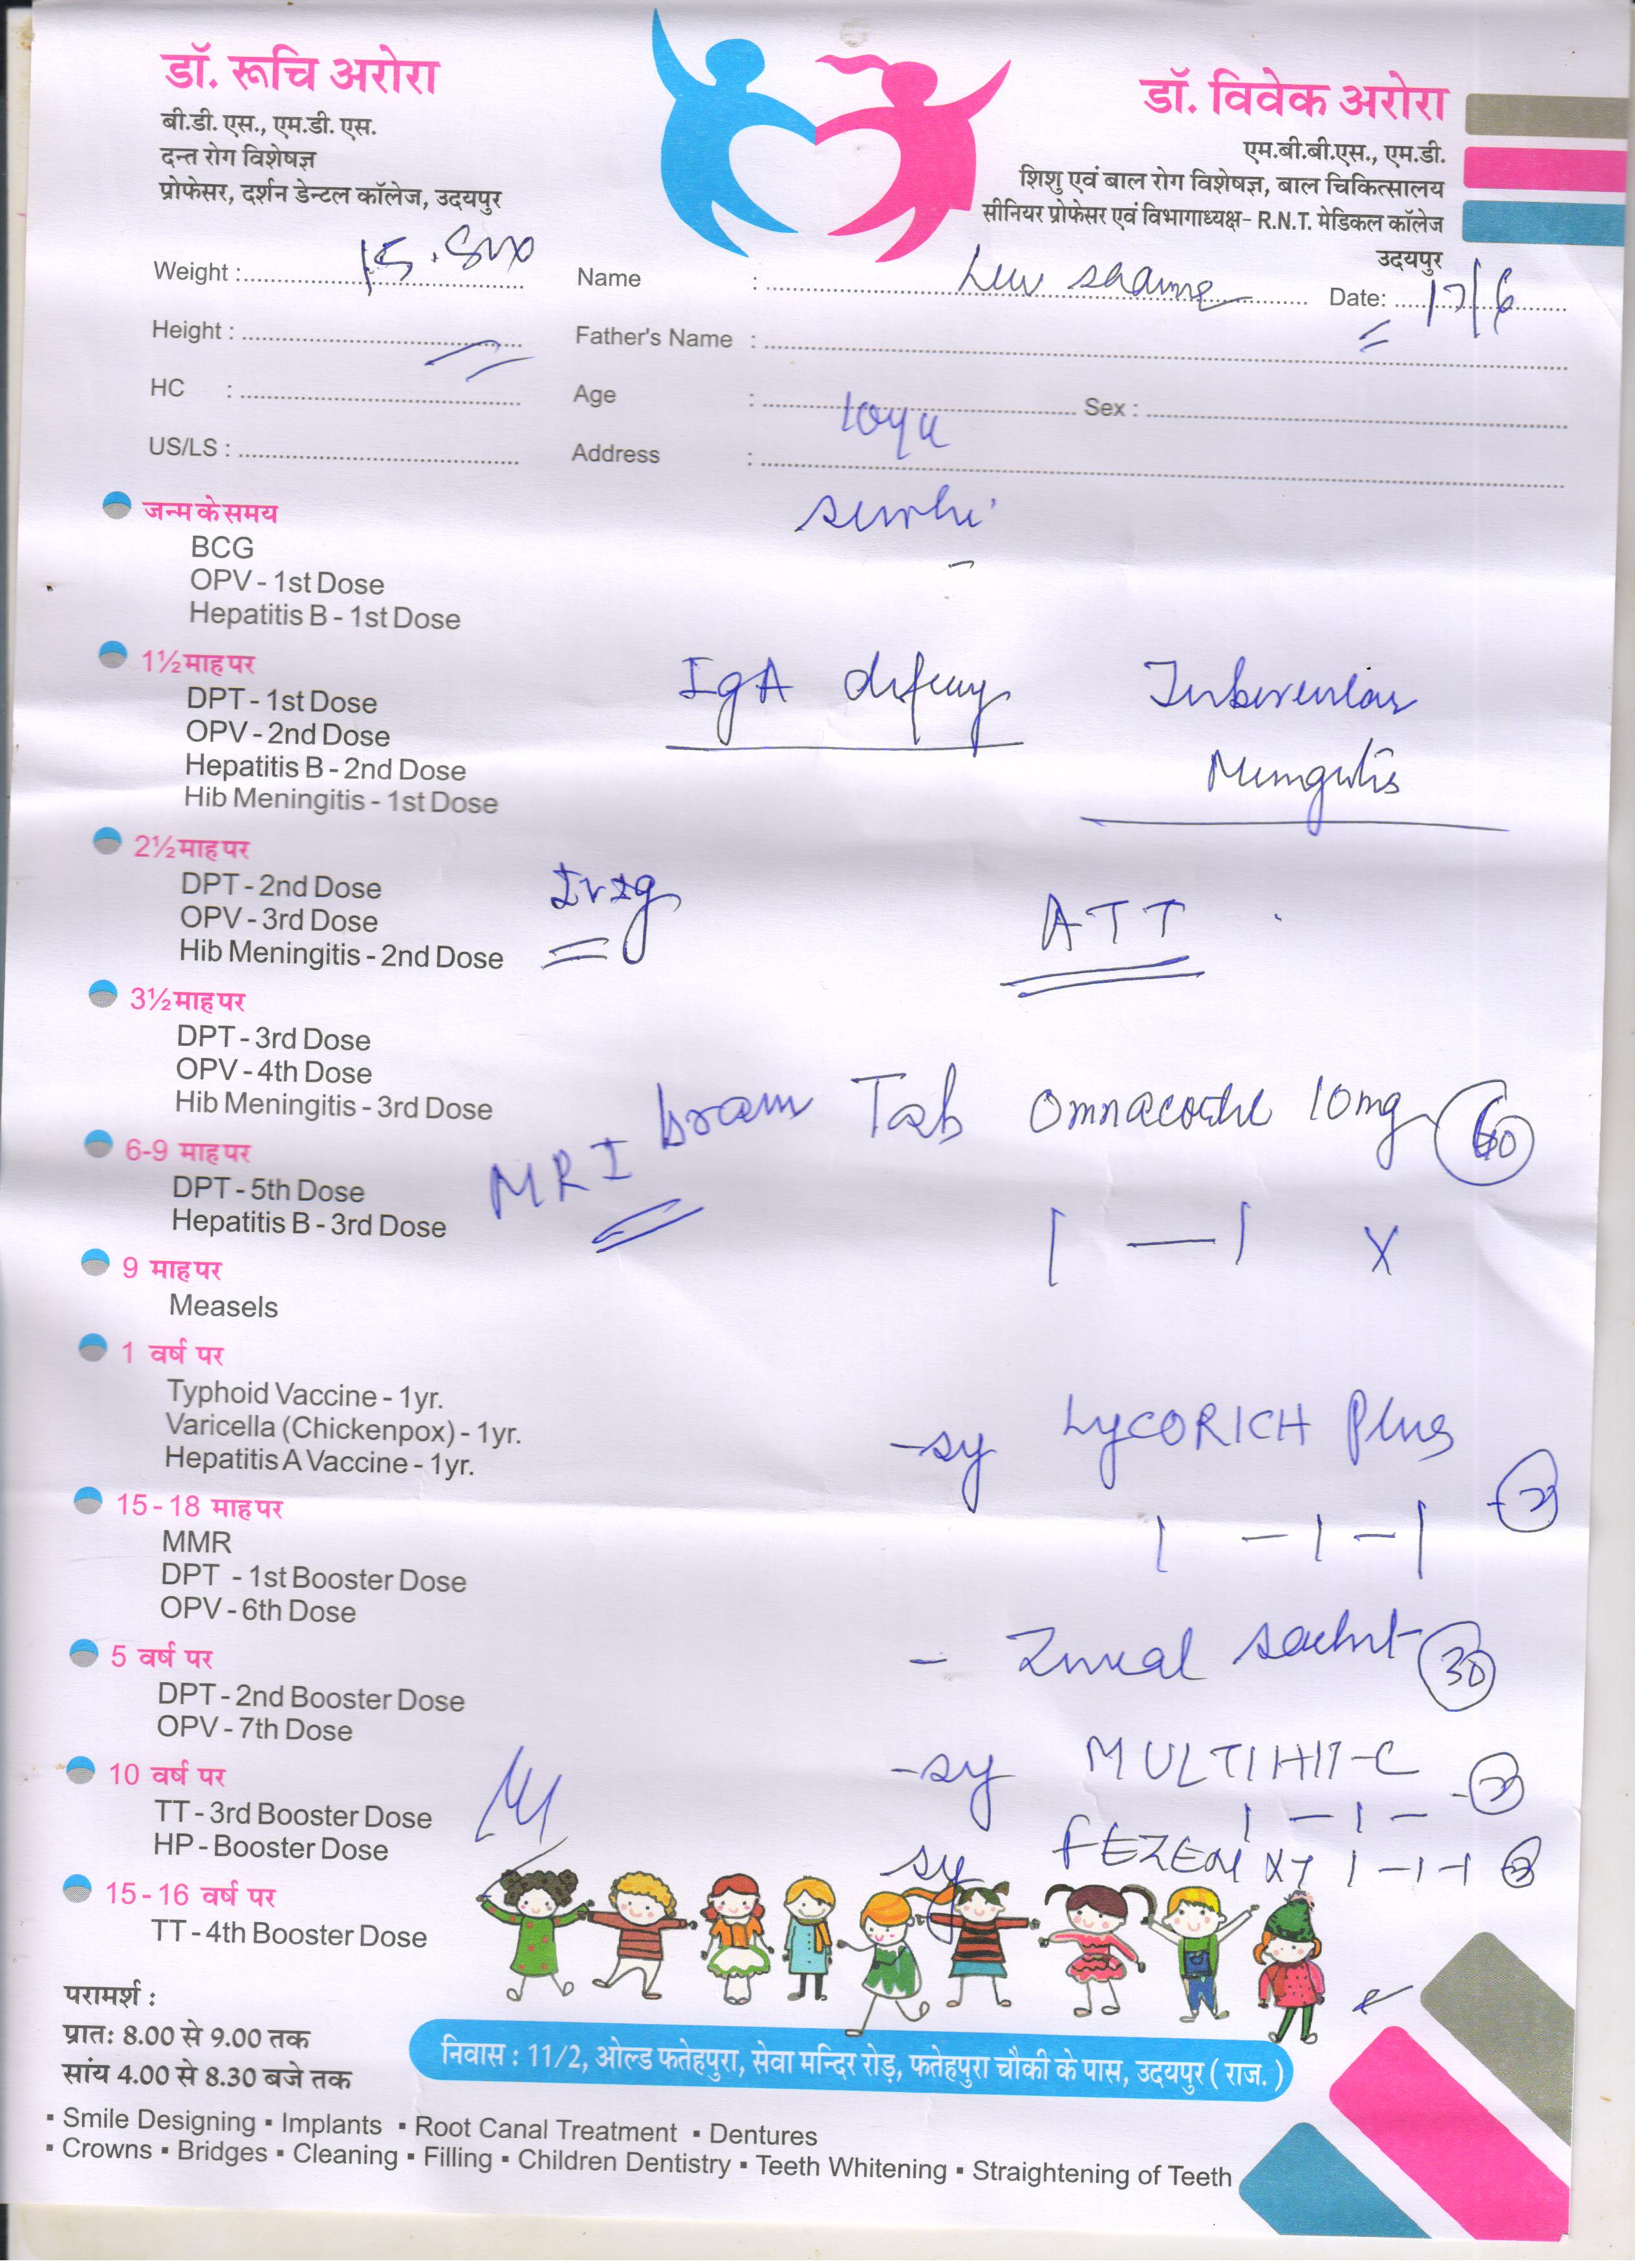 डॉ. रूचि अरोरा
बी.डी. एस., एम.डी. एस.
दन्त रोग विशेषज्ञ
प्रोफेसर, दर्शन डेन्टल कॉलेज, उदयपुर
डॉ. विवेक अरोरा
एम.बी.बी.एस., एम.डी.
शिशु एवं बाल रोग विशेषज्ञ, बाल चिकित्सालय
सीनियर प्रोफेसर एवं विभागाध्यक्ष- R.N.T. मेडिकल कॉलेज
उदयपुर
Weight : 15.
Name :
Date: 17/6
Height :
Father's Name :
HC :
Age : 10
Sex :
US/LS :
Address :
जन्म के समय
BCG
OPV - 1st Dose
Hepatitis B - 1st Dose
1½ माह पर
DPT - 1st Dose
OPV - 2nd Dose
Hepatitis B - 2nd Dose
Hib Meningitis - 1st Dose
IgA
2½ माह पर
DPT - 2nd Dose
OPV - 3rd Dose
Hib Meningitis - 2nd Dose
IvIg
ATT
3½ माह पर
DPT - 3rd Dose
OPV - 4th Dose
Hib Meningitis - 3rd Dose
MRI brain
Tab 10mg
1 — 1 X
6-9 माह पर
DPT - 5th Dose
Hepatitis B - 3rd Dose
9 माह पर
Measels
1 वर्ष पर
Typhoid Vaccine - 1yr.
Varicella (Chickenpox) - 1yr.
Hepatitis A Vaccine - 1yr.
- sy LycoRICH Plus
1 - 1 - 1
15 - 18 माह पर
MMR
DPT - 1st Booster Dose
OPV - 6th Dose
- sachet 30
5 वर्ष पर
DPT - 2nd Booster Dose
OPV - 7th Dose
- sy MULTIHIT-C
1 - 1 -
10 वर्ष पर
TT - 3rd Booster Dose
HP - Booster Dose
sy XT 1 - 1 - 1
15 - 16 वर्ष पर
TT - 4th Booster Dose
परामर्श :
प्रातः 8.00 से 9.00 तक
सांय 4.00 से 8.30 बजे तक
निवास : 11/2, ओल्ड फतेहपुरा, सेवा मन्दिर रोड़, फतेहपुरा चौकी के पास, उदयपुर ( राज. )
▪ Smile Designing ▪ Implants ▪ Root Canal Treatment ▪ Dentures
▪ Crowns ▪ Bridges ▪ Cleaning ▪ Filling ▪ Children Dentistry ▪ Teeth Whitening ▪ Straightening of Teeth